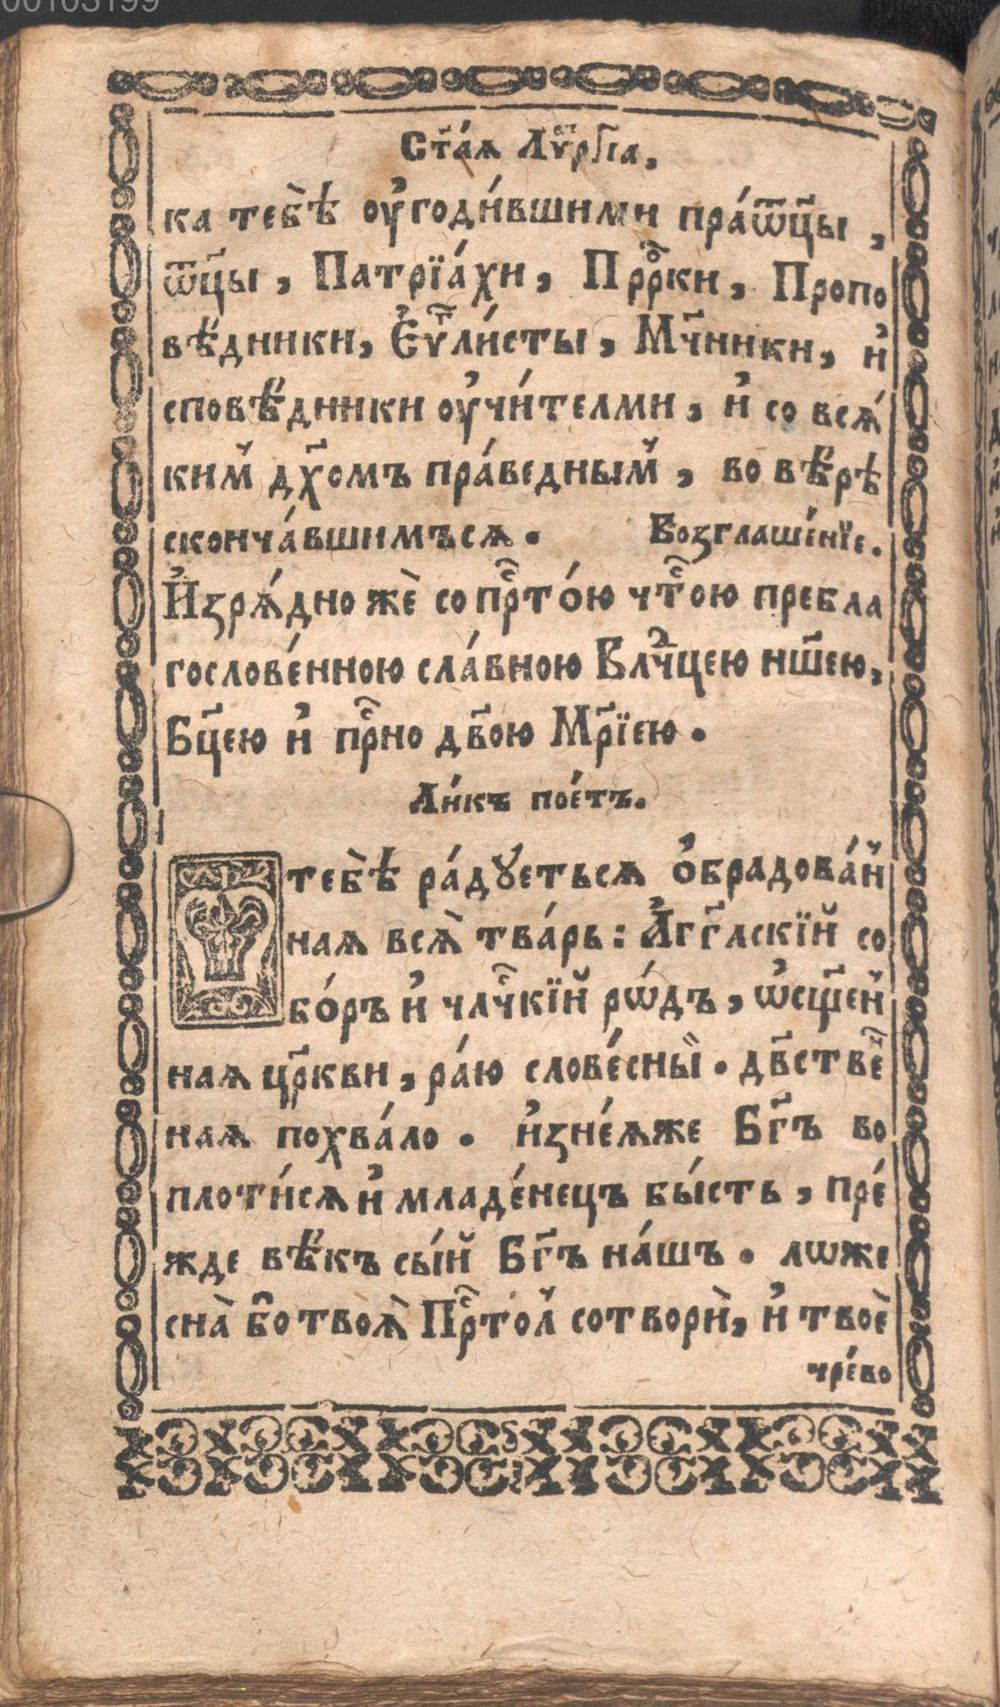 00103199
Ст҃а́ѧ Лѵⷮрг҃їа.
ка тебѣ̀ оу҆годи́вшими пра́ѿц҃ы,
ѿц҃ы, Патрїа́хи, Прⷪ҇рки, Пропо
вѣ́дники, Є҆ѵⷢ҇ли́сты, Мч҃ники, и҆
сповѣ́дники оу҆чи́телми, и҆ со всѧ́
кимⷨ дх҃омъ пра́ведным̾, во вѣ́рѣ
сконча́вшимъсѧ. Возглаше́нїе.
И҆зрѧ́дно жѐ со прⷭ҇то́ю чтⷭ҇ою пребла
гослове́нною сла́вною Влчⷣцею нш҃ею,
Бц҃ею и҆ прⷭ҇но дв҃ою Мр҃їею.
Ли́къ пое́тъ.
тебѣ̀ ра́дꙋетьсѧ ѻ҆брадова́н̾
наѧ всѧ̀ тва́рь: А҆гг҃лскїй со
бо́ръ и҆ члчⷭ҇кїй рѡ́дъ, ѡ҆сщ҃ен̾
наѧ цр҃кви, ра́ю слове́сный. дв҃ствеⷩ҇
наѧ похва́ло. и҆зне́ѧже Бг҃ъ во
плоти́сѧ и҆ младе́нецъ бы́сть, пре́
жде вѣ́къ сы́й Бг҃ъ на́шъ. лѡже
сна̀ боⷡ твоѧ̀ Прⷭ҇тол̾ сотворѝ, и҆ твоѐ
чре́во